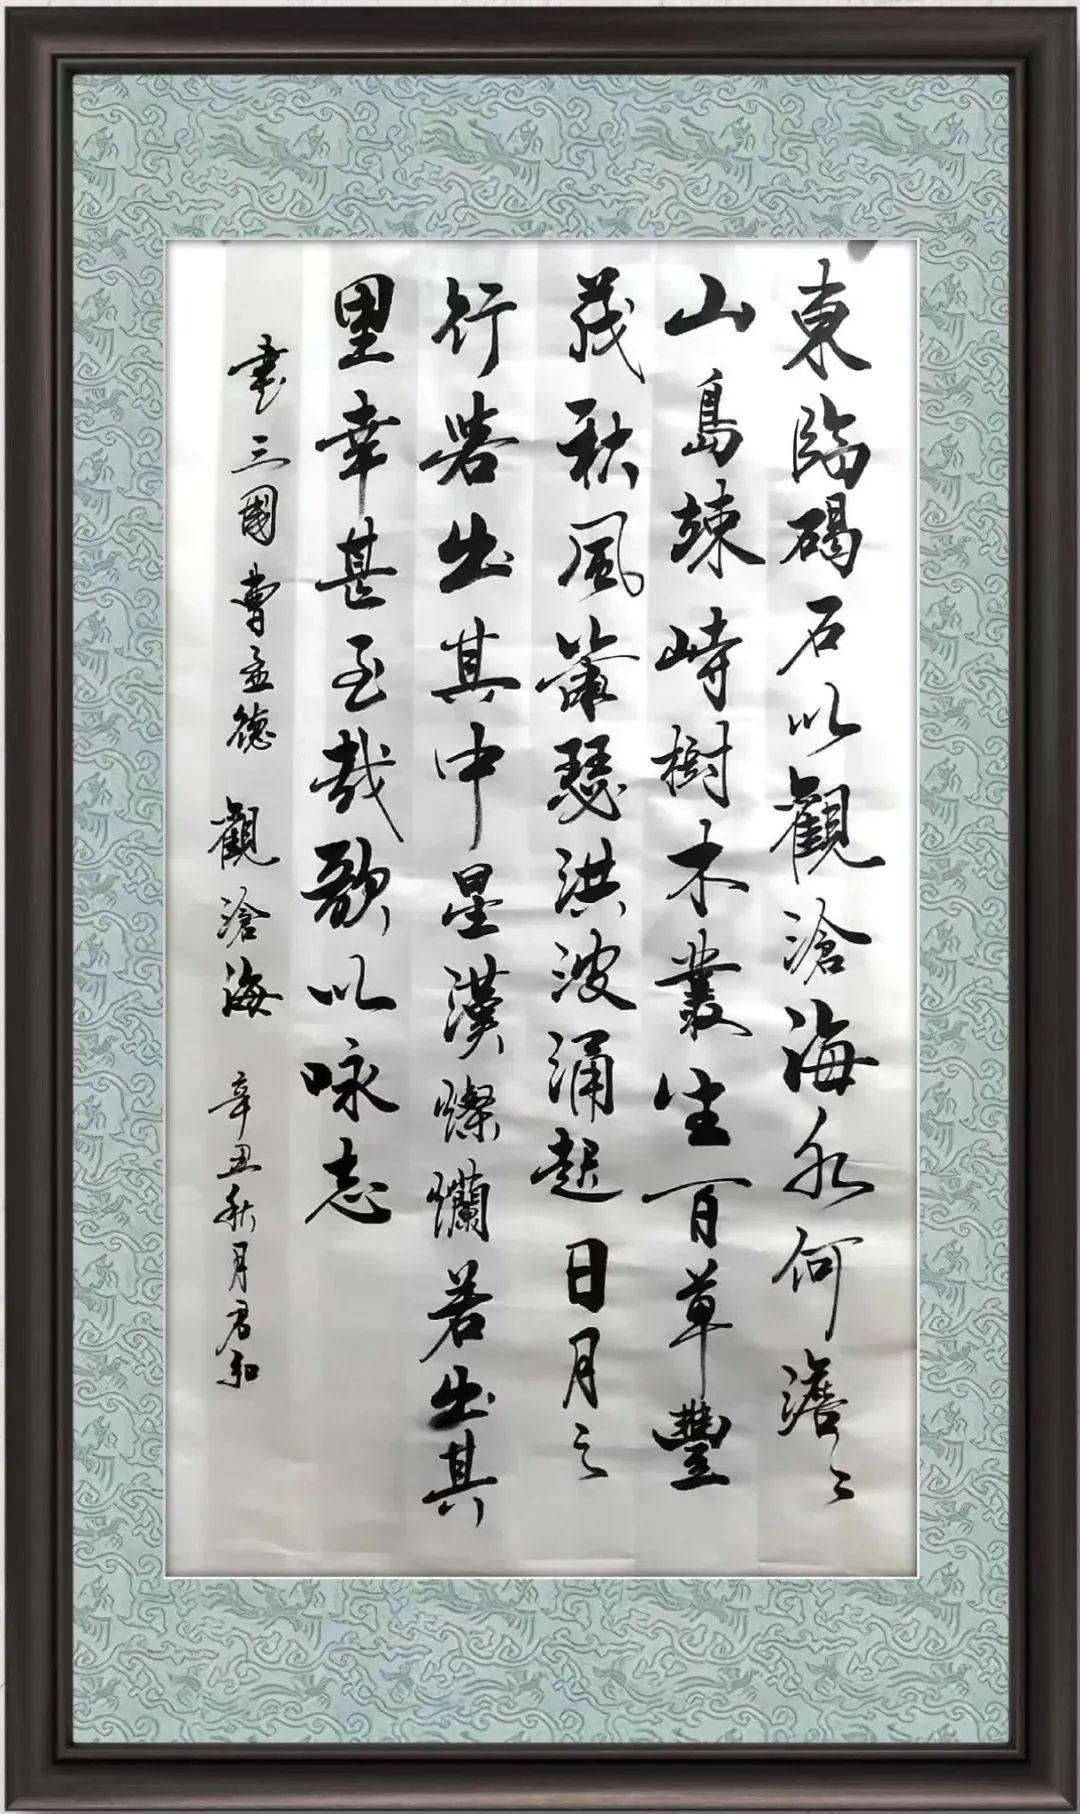 東臨碣石以觀滄海水何澹〻
山島竦峙樹木叢生百草豐
茂秋風蕭瑟洪波涌起日月之
行若出其中星漢燦爛若出其
里幸甚至哉歌以咏志
書三國曹孟德觀滄海辛丑秋月君和